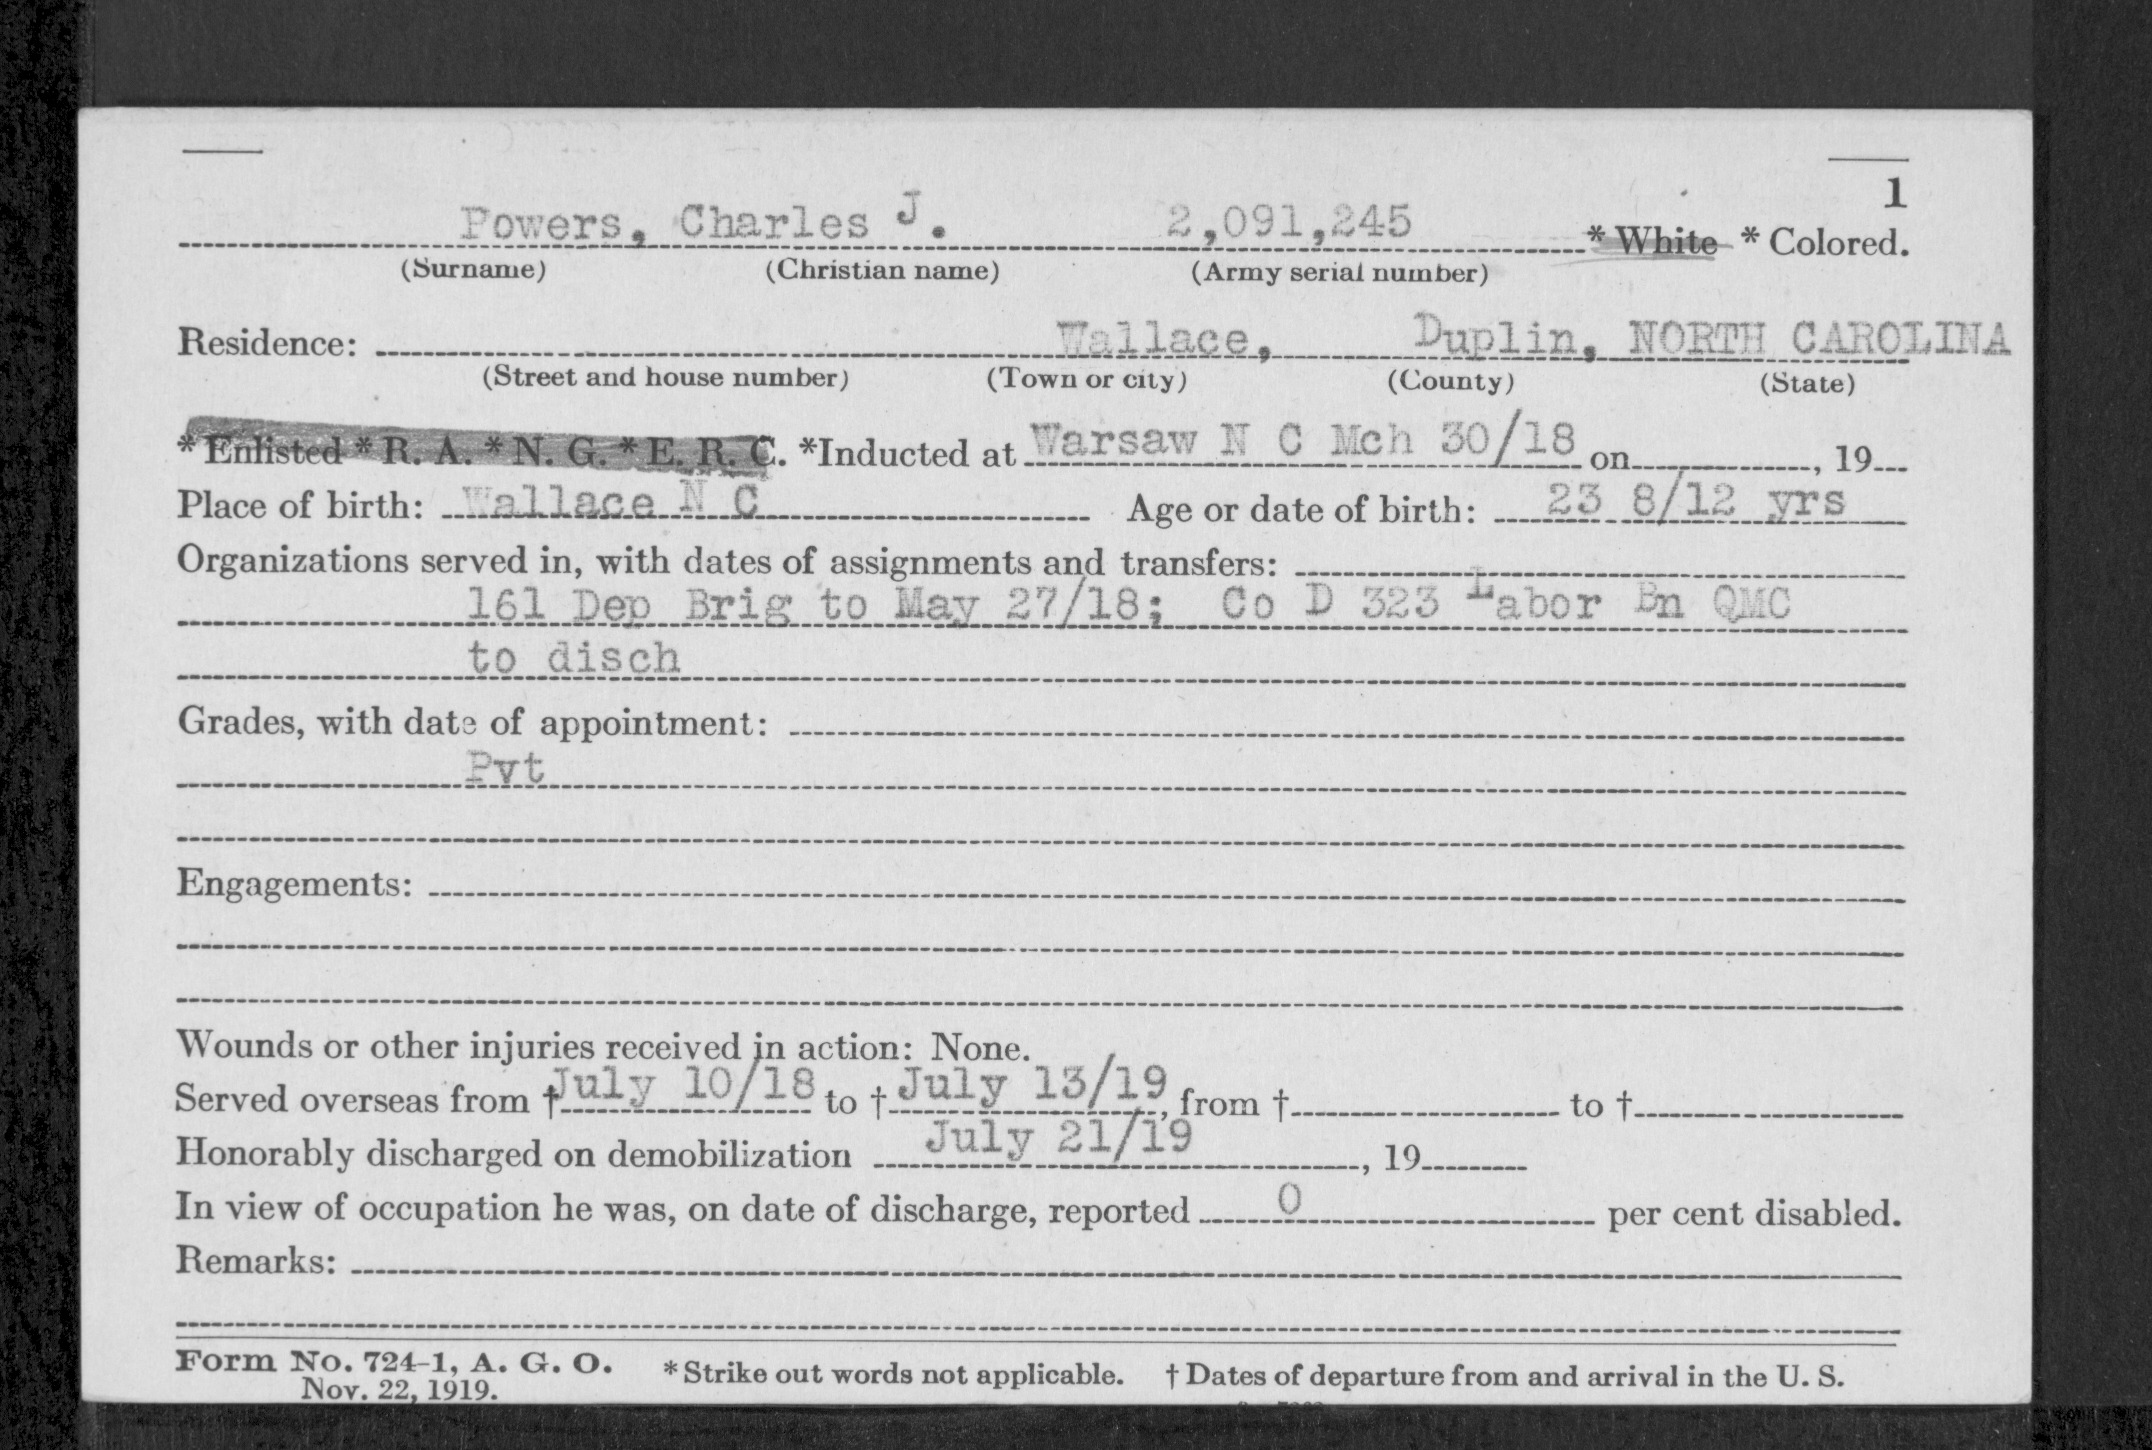 1
Powers, Charles J. 2,091,245 * White * Colored.
(Surname) (Christian name) (Army serial number)
Residence: Wallace, Duplin, NORTH CAROLINA
(Street and house number) (Town or city) (County) (State)
* Enlisted * R. A. * N. G. * E. R. C. *Inducted at Warsaw N C Mch 30/18 on , 19
Place of birth: Wallace N C Age or date of birth: 23 8/12 yrs
Organizations served in, with dates of assignments and transfers:
161 Dep Brig to May 27/18; Co D 323 Labor Bn QMC
to disch
Grades, with date of appointment:
Pvt
Engagements:
Wounds or other injuries received in action: None.
Served overseas from † July 10/18 to † July 13/19, from † to †
Honorably discharged on demobilization July 21/19 , 19
In view of occupation he was, on date of discharge, reported 0 per cent disabled.
Remarks:
Form No. 724-1, A. G. O. * Strike out words not applicable. † Dates of departure from and arrival in the U. S.
Nov. 22, 1919.